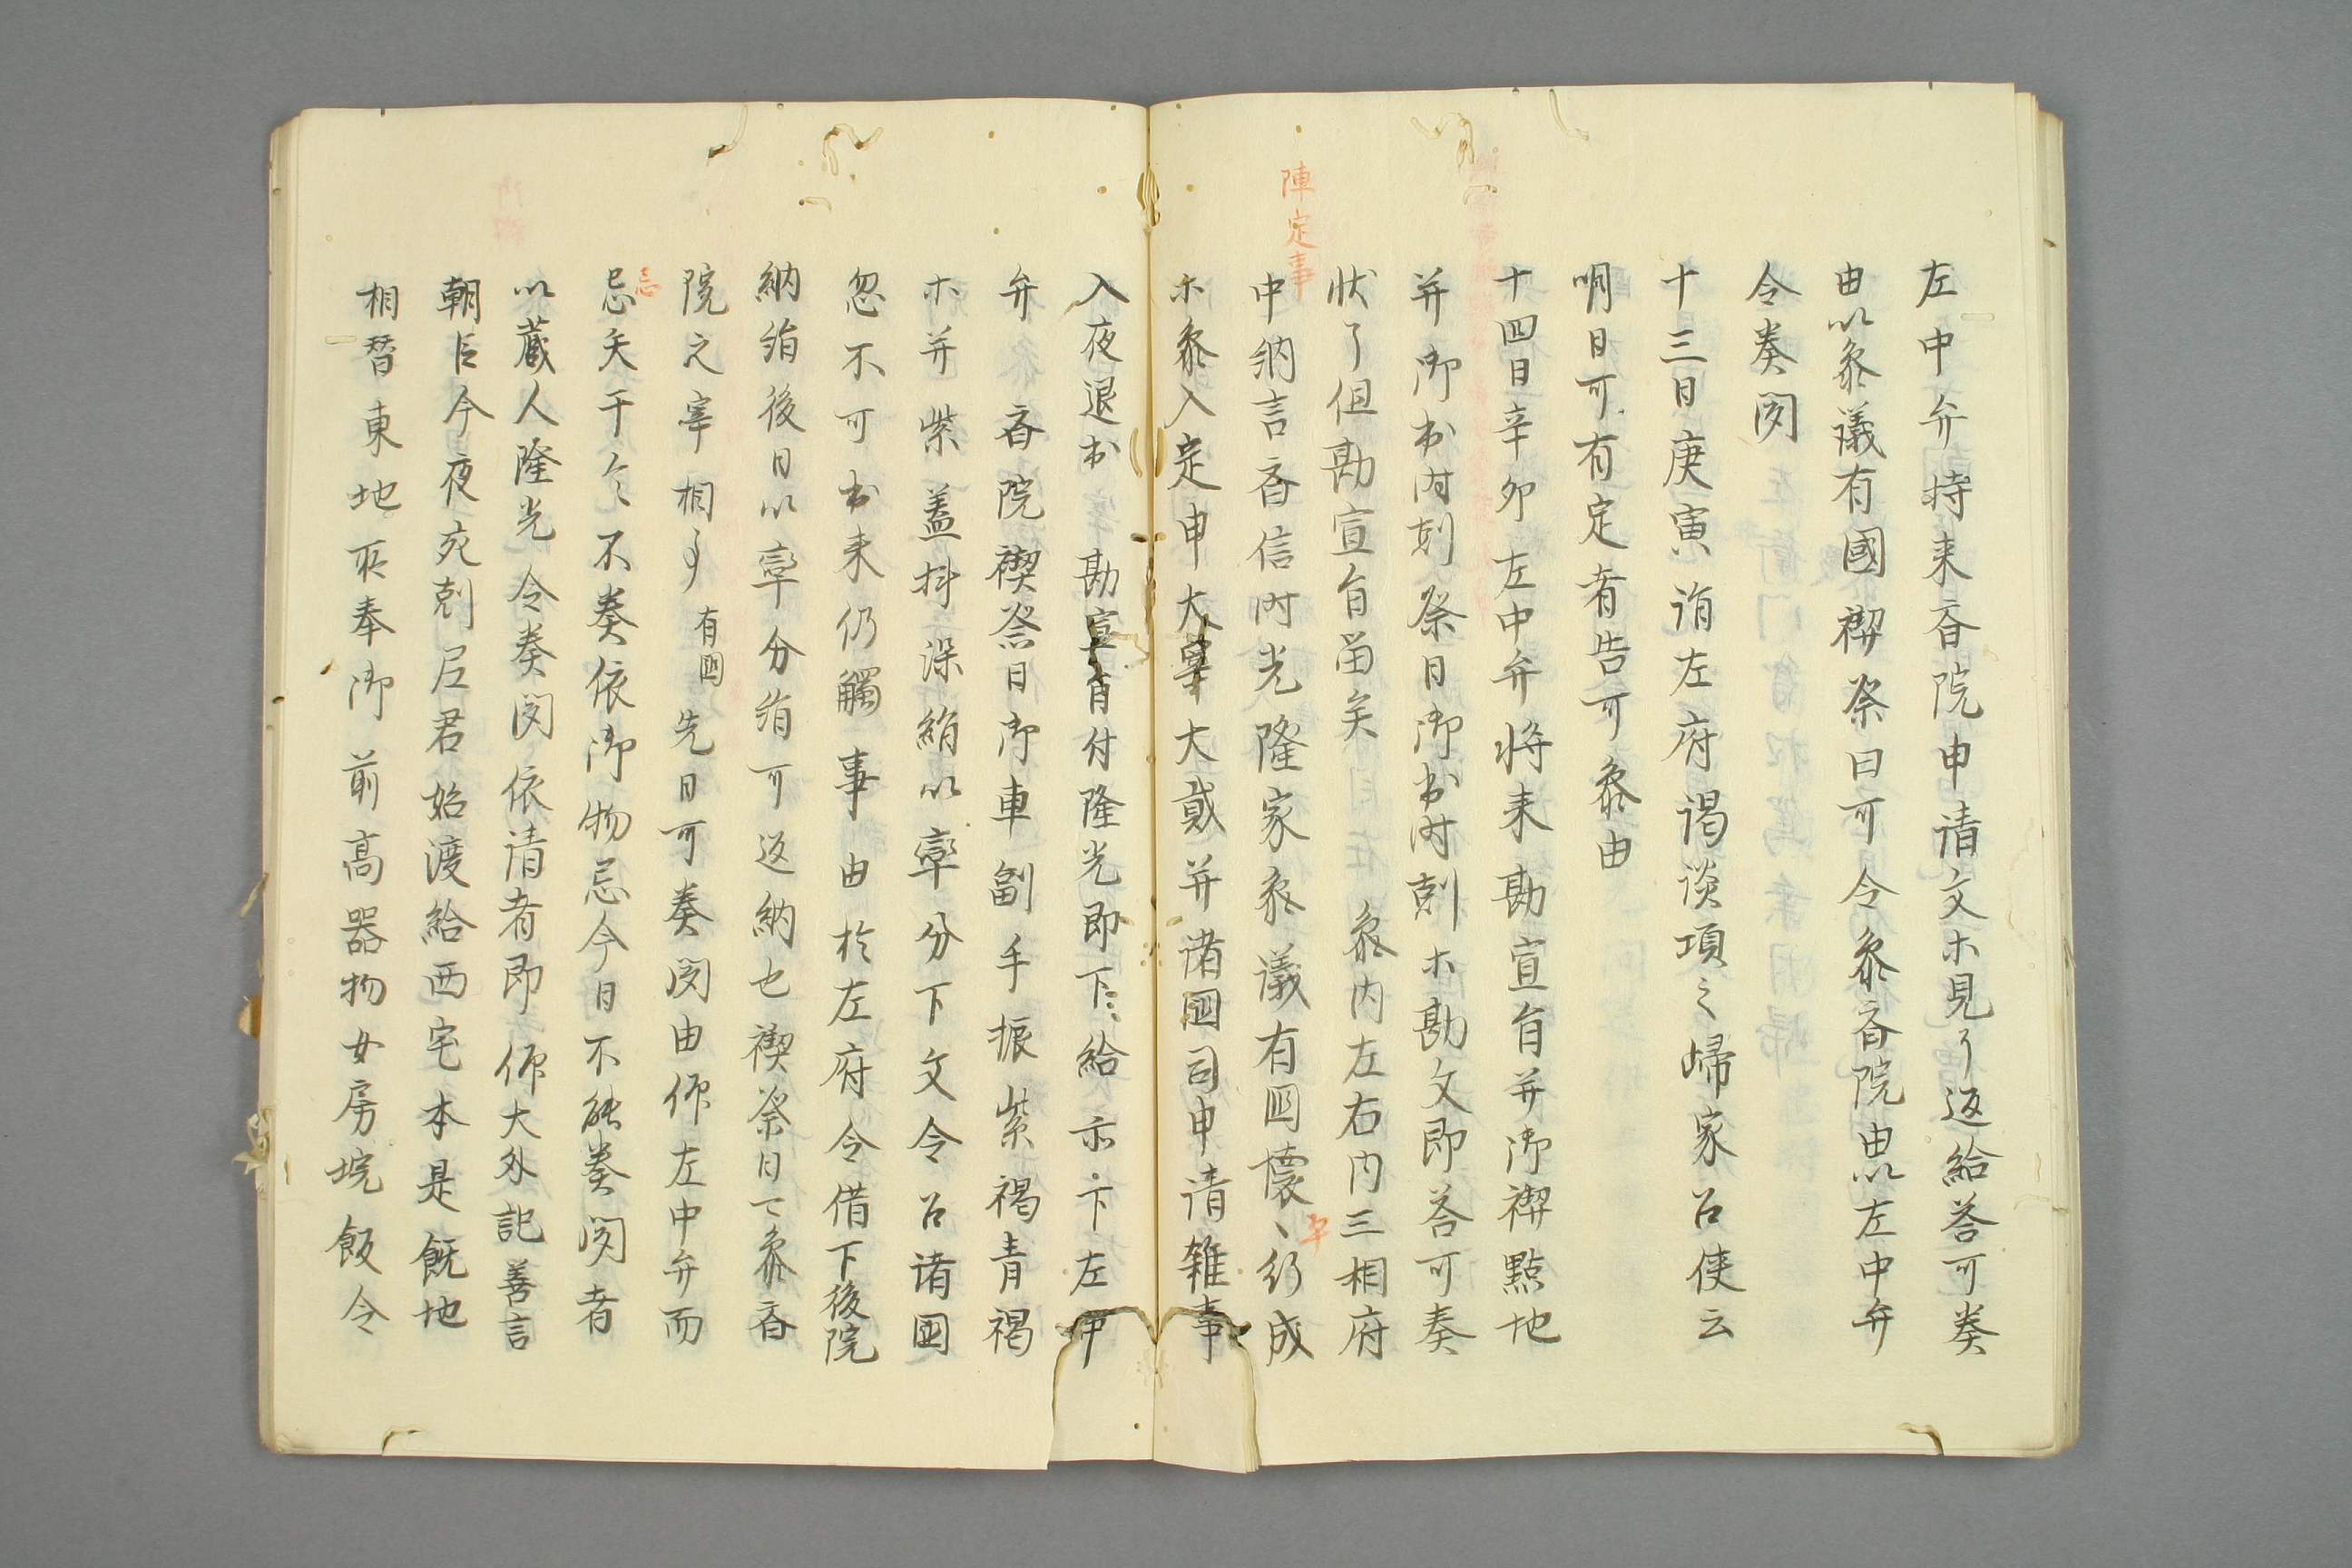 左中弁持来斎院申請文ホ見了返給答可奏
由以参議有國禊祭日可令参斎院由以左中弁
令奏聞
十三日庚寅詣左府謁談頃之帰家召使云
明日可有定者告可参由
十四日辛卯左中弁将来勘宣旨并御禊點地
并御出時剋祭日御出時剋ホ勘文即答可奏
状了但勘宣旨留矣 参内左右内三相府
陣定事
中納言斉信時光隆家参議有国懐〻仍成
ホ参入定申大宰大貳并諸國司申請雑事
入夜退出 勘宣旨付隆光即下〻給 示下左中
弁 斎院禊祭日御車副手振紫褐青褐
ホ并紫蓋抖深絹以率分下文令召諸國
忽不可出来仍觸事由於左府令借下後院
納絹後日以率分絹可返納也禊祭日可参斎
院之宰相事有國先日可奏聞由仰左中弁而
忌
忌矣于今不奏依御物忌今日不能奏聞者
以蔵人隆光令奏聞依請者即仰大外記善言
朝臣今夜宛剋尼君始渡給西宅本是厩地
相替東地所奉御前高器物女房垸飯令